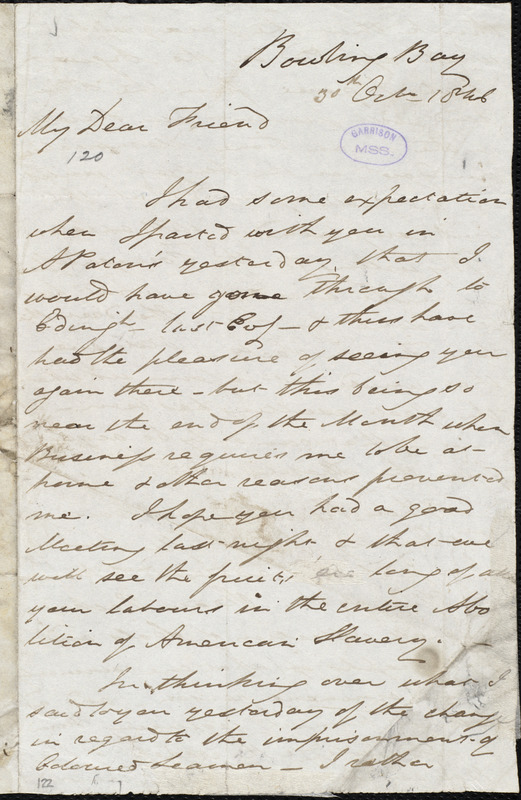 Bowling Bay
30th Octr 1846
My Dear Friend
GARRISON
MSS.
120
I had some expectation
when I parted with you in
A Paton's yesterday, that I
would have gone through to
Edingh last Evg - & thus have
had the pleasure of seeing you
again there - but this being so
near the end of the Month when
Business requires me to be at
home & other reasons prevented
me. I hope you had a good
Meeting last night & that we
will see the fruits ere long of all
your labours in the entire Abo
lition of American Slavery. -
In thinking over what I
said to you yesterday of the change
in regard to the imprisonment of
Coloured Seamen - I rather
122